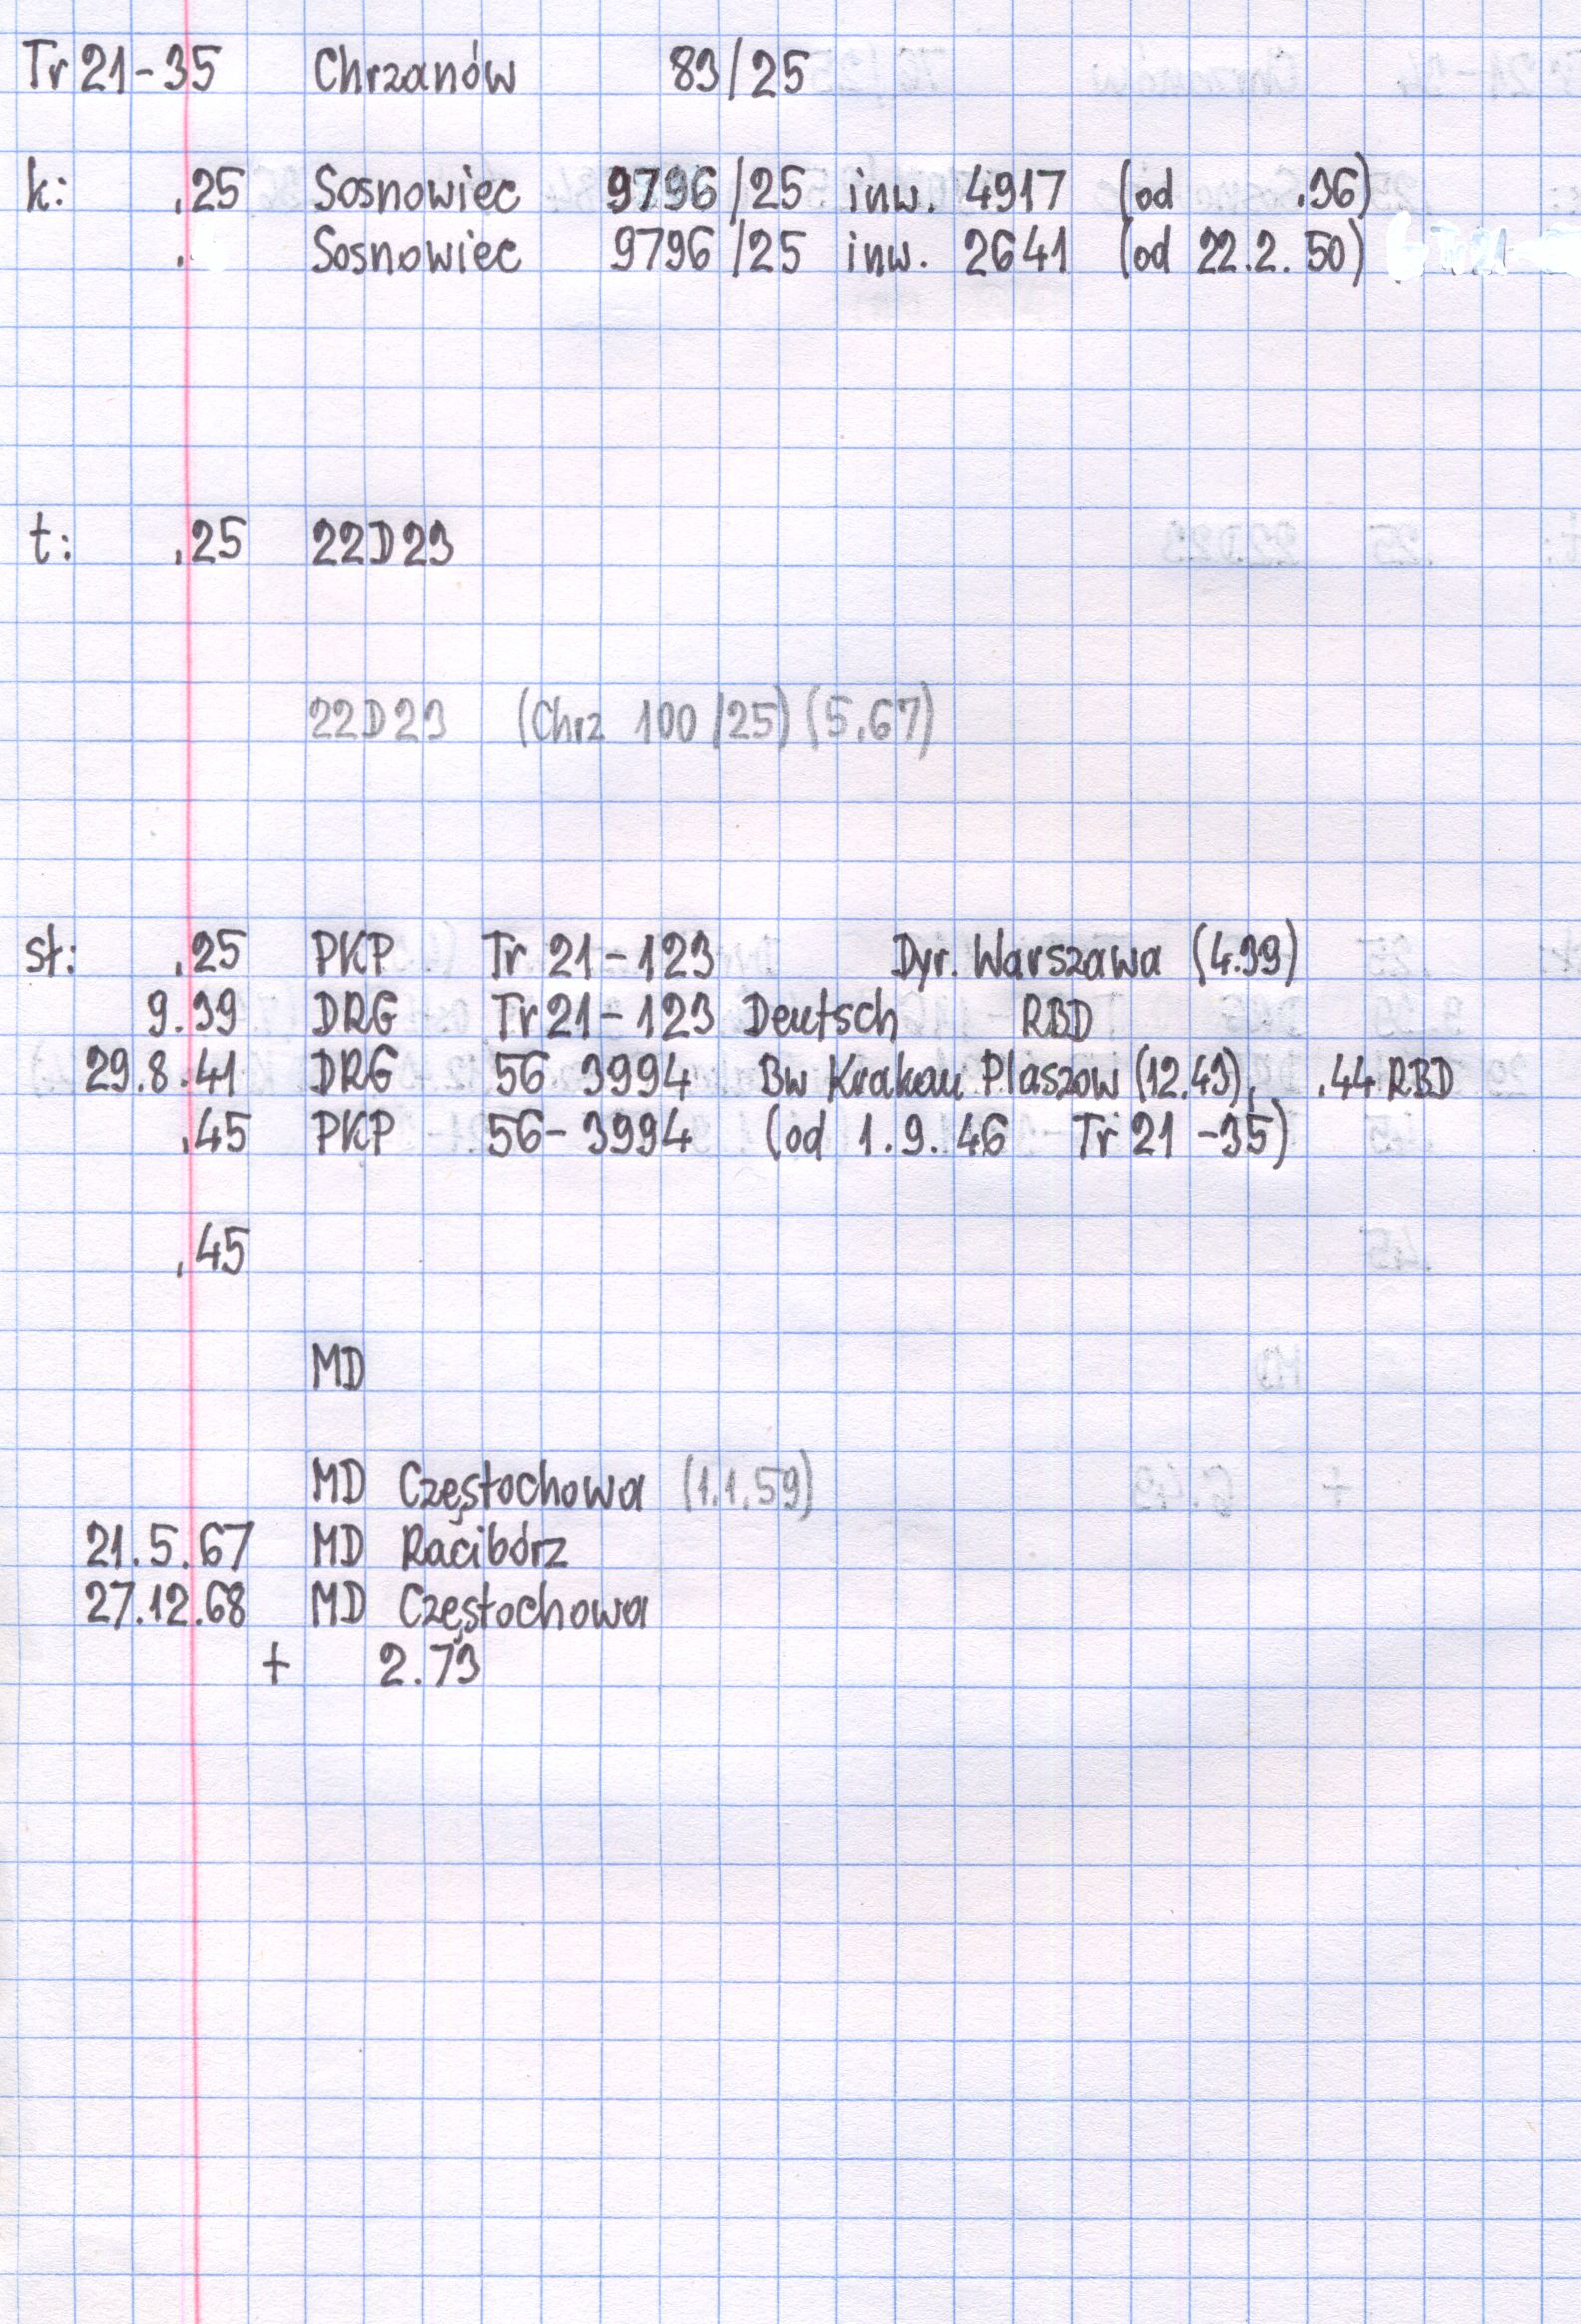 Tr 21-35 Chrzanów 83/25
k: .25 Sosnowiec 9796/25 inw. 4917 (od .36)
. Sosnowiec 9796/25 inw. 2641 (od 22.2.50)
t: .25 22D23
22D23 (Chrz 100/25) (5.67)
st: .25 PKP Tr 21-123 Dyr. Warszawa (4.39)
9.39 DRG Tr 21-123 Deutsch RBD
29.8.41 DRG 56 3994 Bw Krakau Plaszow (12.43), .44 RBD
.45 PKP 56-3994 (od 1.9.46 Tr 21-35)
.45
MD
MD Częstochowa (1.1.59)
21.5.67 MD Racibórz
27.12.68 MD Częstochowa
+ 2.73